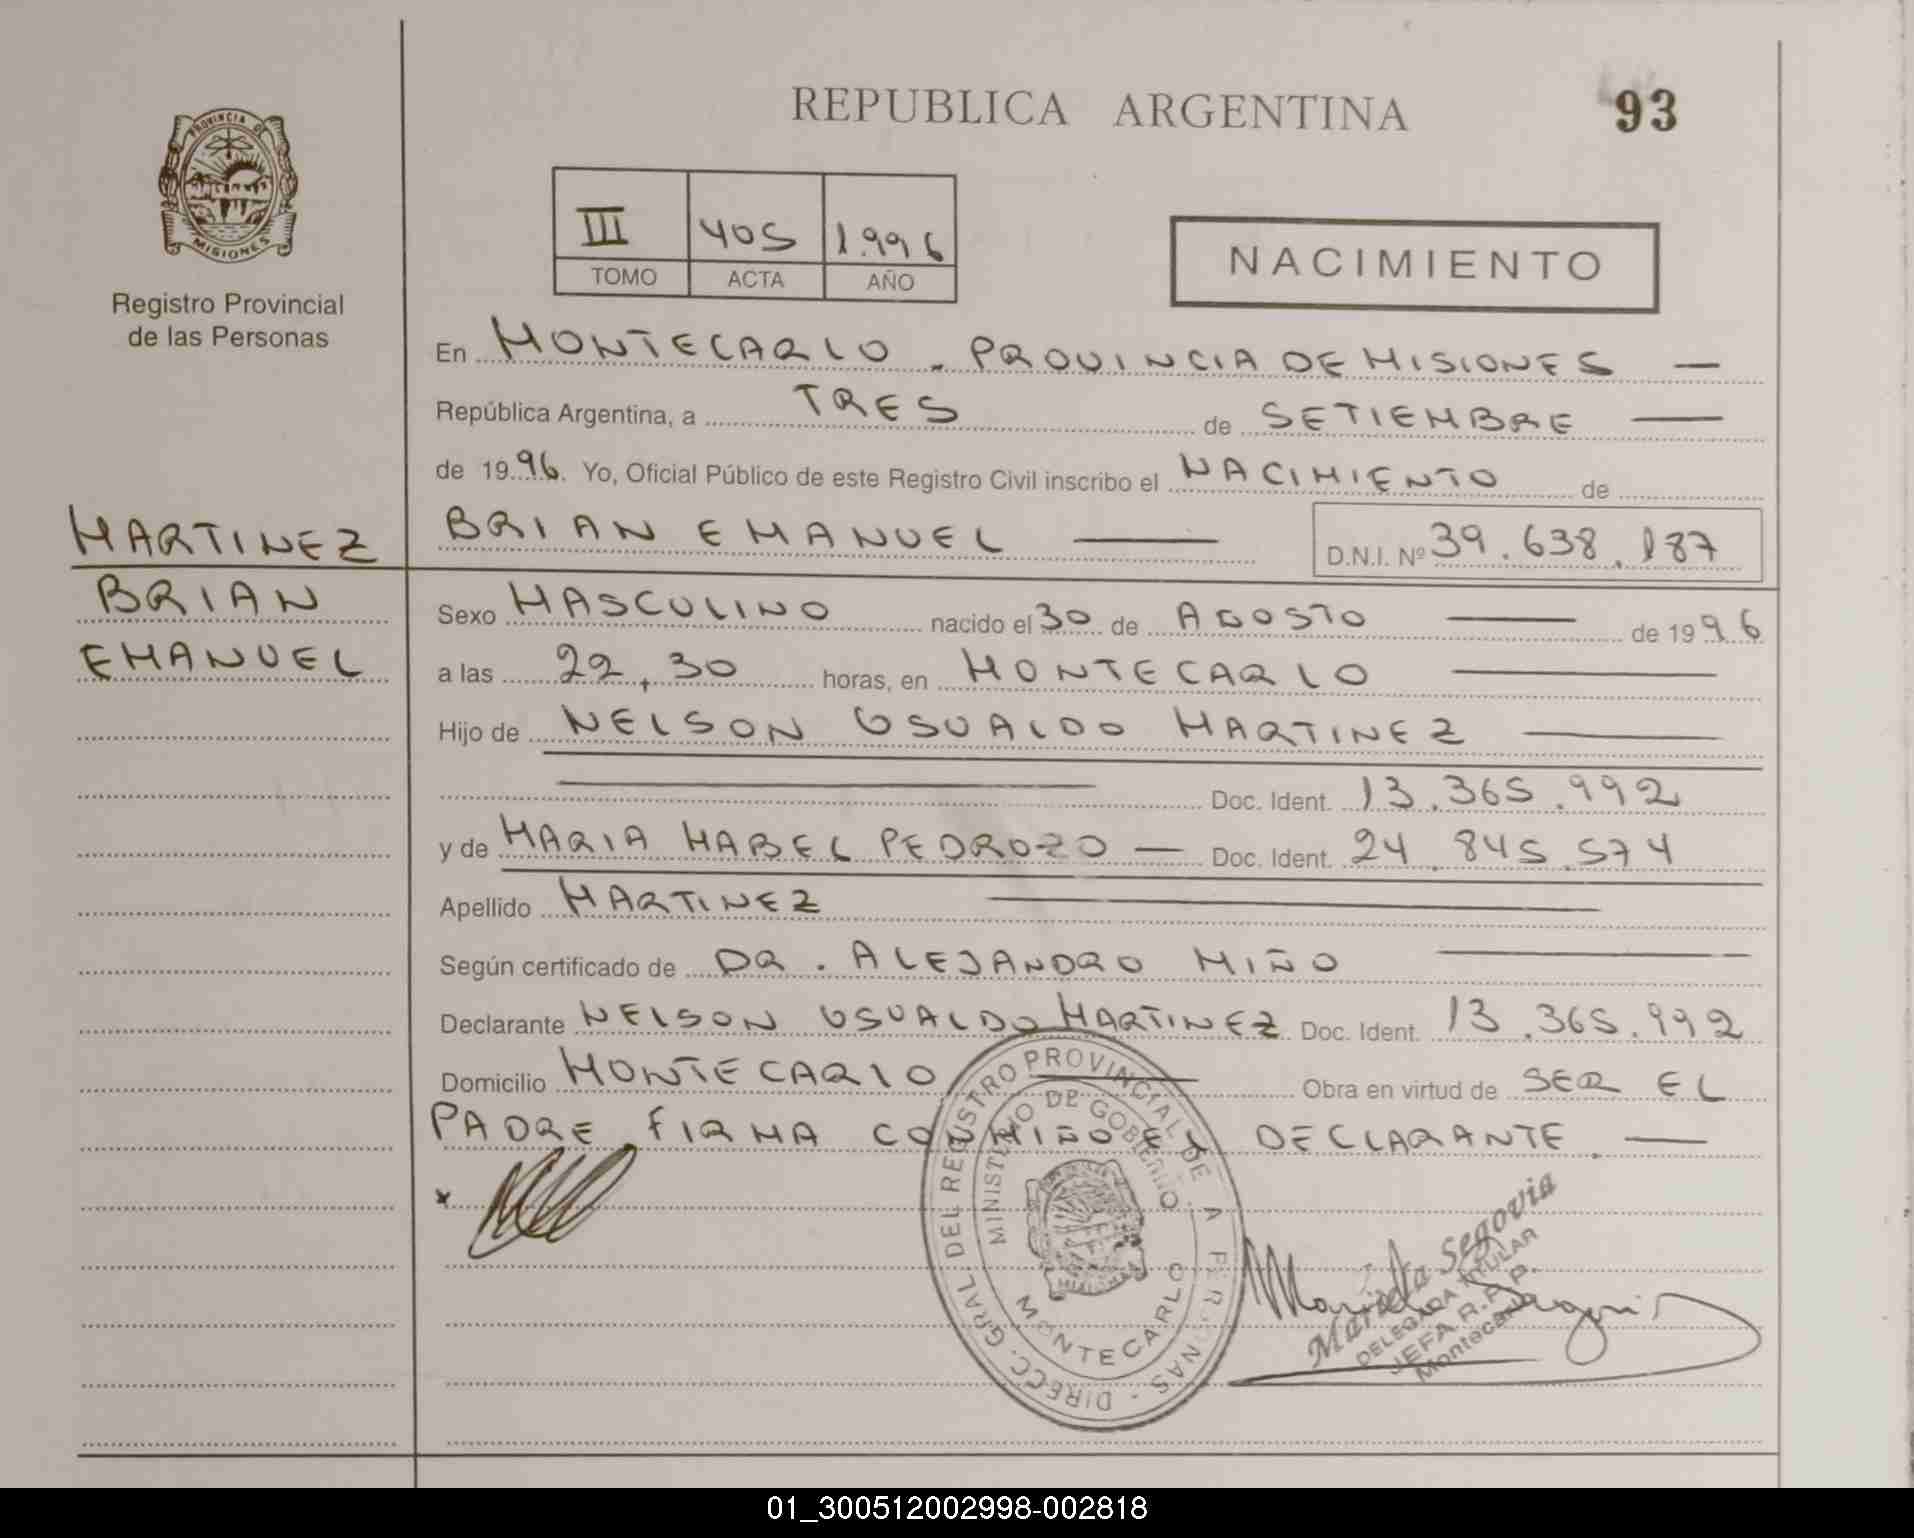 REPUBLICA ARGENTINA
93
PROVINCIA DE
MISIONES
Registro Provincial
de las Personas
III 405 1.996
TOMO ACTA AÑO
NACIMIENTO
En MONTECARLO. PROVINCIA DE MISIONES —
República Argentina, a TRES de SETIEMBRE —
de 19 96. Yo, Oficial Público de este Registro Civil inscribo el NACIMIENTO de
MARTINEZ
BRIAN
EMANUEL
BRIAN EMANUEL — D.N.I. Nº 39.638.187
Sexo MASCULINO nacido el 30 de AGOSTO — de 19 96
a las 22,30 horas, en MONTECARLO —
Hijo de NELSON OSVALDO MARTINEZ —
— Doc. Ident. 13.365.992
y de MARIA MABEL PEDROZO — Doc. Ident. 24.845.574
Apellido MARTINEZ —
Según certificado de DR. ALEJANDRO MIÑO —
Declarante NELSON OSVALDO MARTINEZ Doc. Ident. 13.365.992
Domicilio MONTECARLO — Obra en virtud de SER EL
PADRE. FIRMA CONMIGO EL DECLARANTE. —
x
DIRECC. GRAL. DEL REGISTRO PROVINCIAL DE PERSONAS -
MINISTERIO DE GOBIERNO
MISIONES
MONTECARLO
Mariela Segovia
DELEGADA TITULAR
JEFA R.P.P.
Montecarlo
01_300512002998-002818